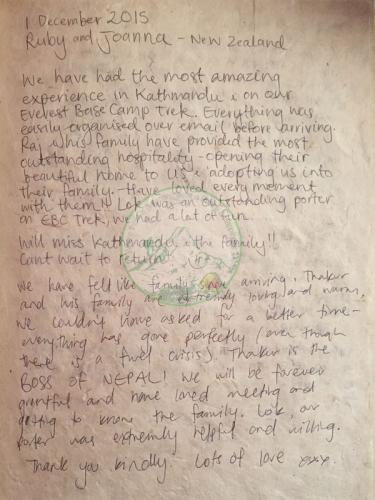 1 December 2015
Ruby and Joanna - New Zealand
We have had the most amazing
experience in Kathmandu & on our
Everest Base Camp Trek. Everything was
easily organised over email before arriving.
Raj & his family have provided the most
outstanding hospitality - opening their
beautiful home to us & adopting us into
their family. Have loved every moment
with them!! Lok was an outstanding porter
on EBC Trek, we had a lot of fun.
Will miss Kathmandu & the family!!
Cant wait to return
we have felt like family since arriving. Thakur
and his family are extremely loving and warm,
we couldn't have asked for a better time -
everything has gone perfectly (even though
there is a fuel crisis). Thakur is the
BOSS of NEPAL! We will be forever
grateful and have loved meeting and
getting to know the family. Lok, our
porter was extremely helpful and willing.
Thank you kindly. Lots of love xxx.